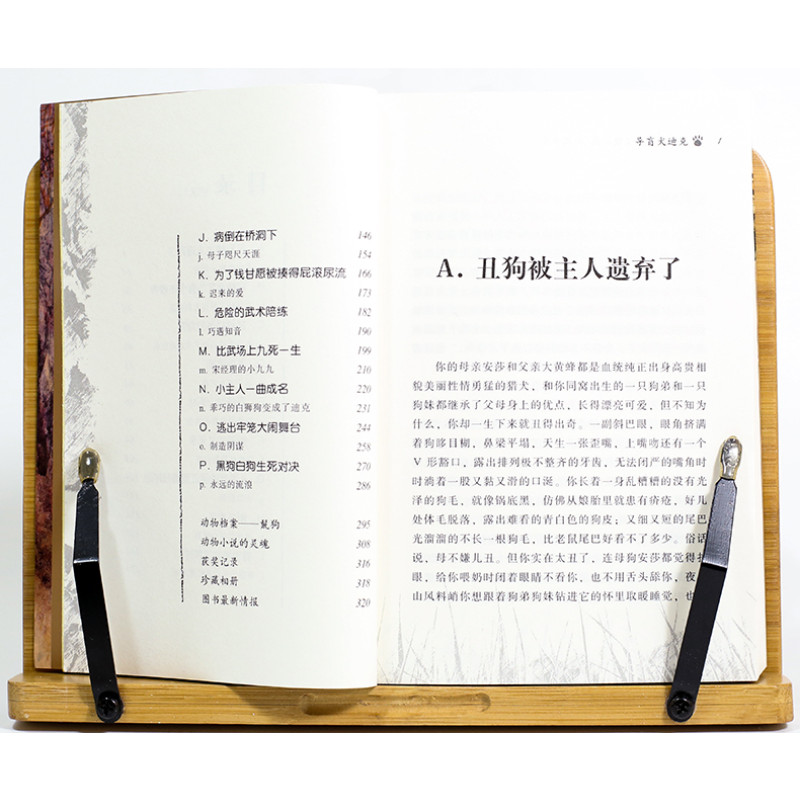 J. 病倒在桥洞下 146
j. 母子咫尺天涯 154
K. 为了钱甘愿被揍得屁滚尿流 166
k. 迟来的爱 173
L. 危险的武术陪练 182
l. 巧遇知音 190
M. 比武场上九死一生 199
m. 宋经理的小九九 210
N. 小主人一曲成名 220
n. 乖巧的白狮狗变成了迪克 231
O. 逃出牢笼大闹舞台 244
o. 制造阴谋 258
P. 黑狗白狗生死对决 270
p. 永远的流浪 286
动物档案——鬣狗 295
动物小说的灵魂 308
获奖记录 316
珍藏相册 318
图书最新情报 320
导盲犬迪克 1
A. 丑狗被主人遗弃了
你的母亲安莎和父亲大黄蜂都是血统纯正出身高贵相
貌美丽性情勇猛的猎犬，和你同窝出生的一只狗弟和一只
狗妹都继承了父母身上的优点，长得漂亮可爱，但不知为
什么，你却一生下来就丑得出奇。一副斜巴眼，眼角挤满
着狗眵目糊，鼻梁平塌，天生一张歪嘴，上嘴吻还有一个
V 形豁口，露出排列极不整齐的牙齿，无法闭严的嘴角时
时淌着一股又黏又滑的口涎。你长着一身乱糟糟的没有光
泽的狗毛，就像锅底黑，仿佛从娘胎里就患有疥疮，好几
处体毛脱落，露出难看的青白色的狗皮；又细又短的尾巴
光溜溜的不长一根狗毛，比老鼠尾巴好看不了多少。俗话
说，母不嫌儿丑。但你实在太丑了，连母狗安莎都觉得
眼，给你喂奶时闭着眼睛不看你，也不用舌头舔你，夜
山风料峭你想跟着狗弟狗妹钻进它的怀里取暖睡觉，也